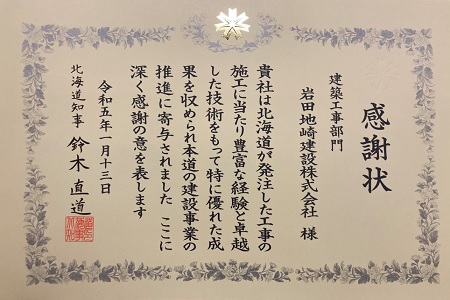 感謝状
建築工事部門
岩田地崎建設株式会社 様
貴社は北海道が発注した工事の
施工に当たり豊富な経験と卓越
した技術をもって特に優れた成
果を収められ本道の建設事業の
推進に寄与されました ここに
深く感謝の意を表します
令和五年一月十三日
北海道知事 鈴木直道